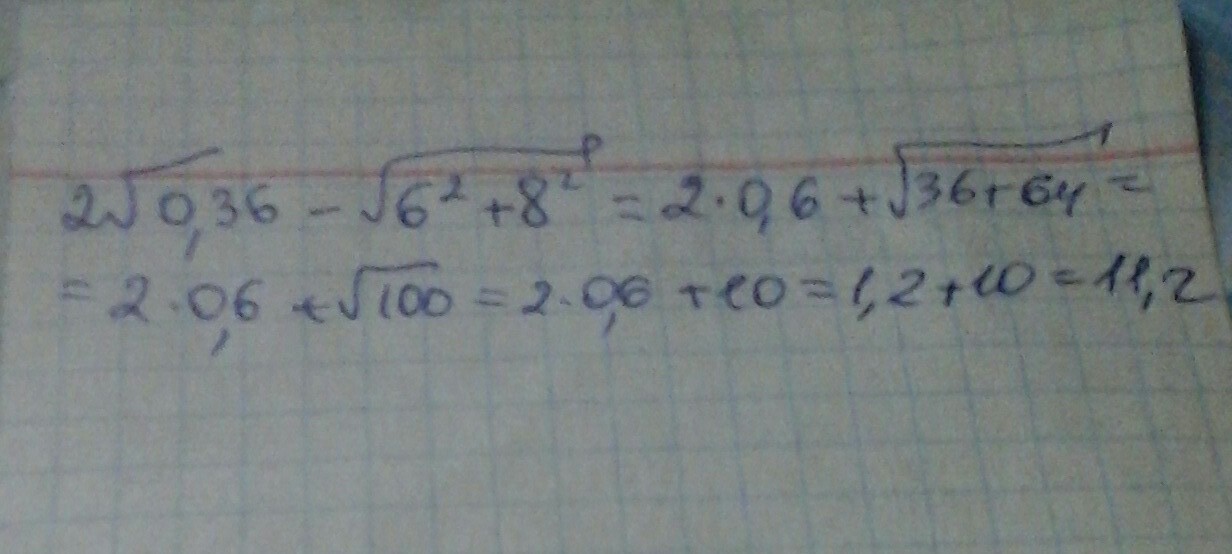 2√0,36 - √6² + 8² = 2·0,6 + √36+64 =
= 2·0,6 + √100 = 2·0,6 + 10 = 1,2+10 = 11,2